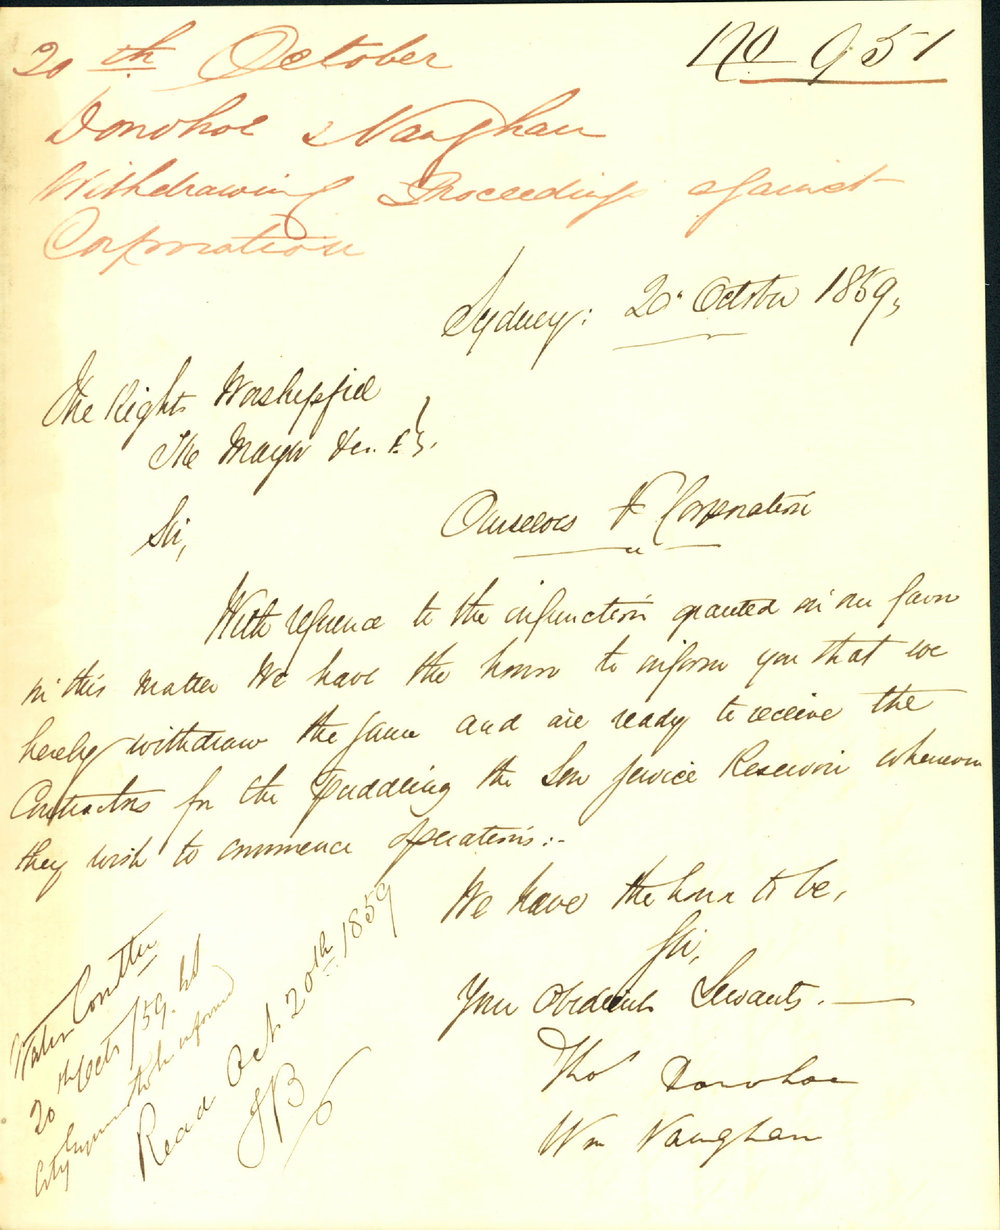 20th October
No 951
Donohoe & Vaughan
Withdrawing Proceedings against
Corporation
Sydney: 20 October 1859,
The Right Worshipful
The Mayor &c. &.
Sir,
Ourselves & Corporation
With reference to the injunction granted in our favor
in this matter We have the honor to inform you that we
hereby withdraw the same and are ready to receive the
Contractors for the Puddling the Low Service Reservoir whenever
they wish to commence operations:-
We have the honor to be,
Sir,
Your Obedient Servants.
Thos Donohoe
Wm Vaughan
Water Comttee
20th Octr/59.
City Engineer to be informed
Read Oct 20th 1859
JB